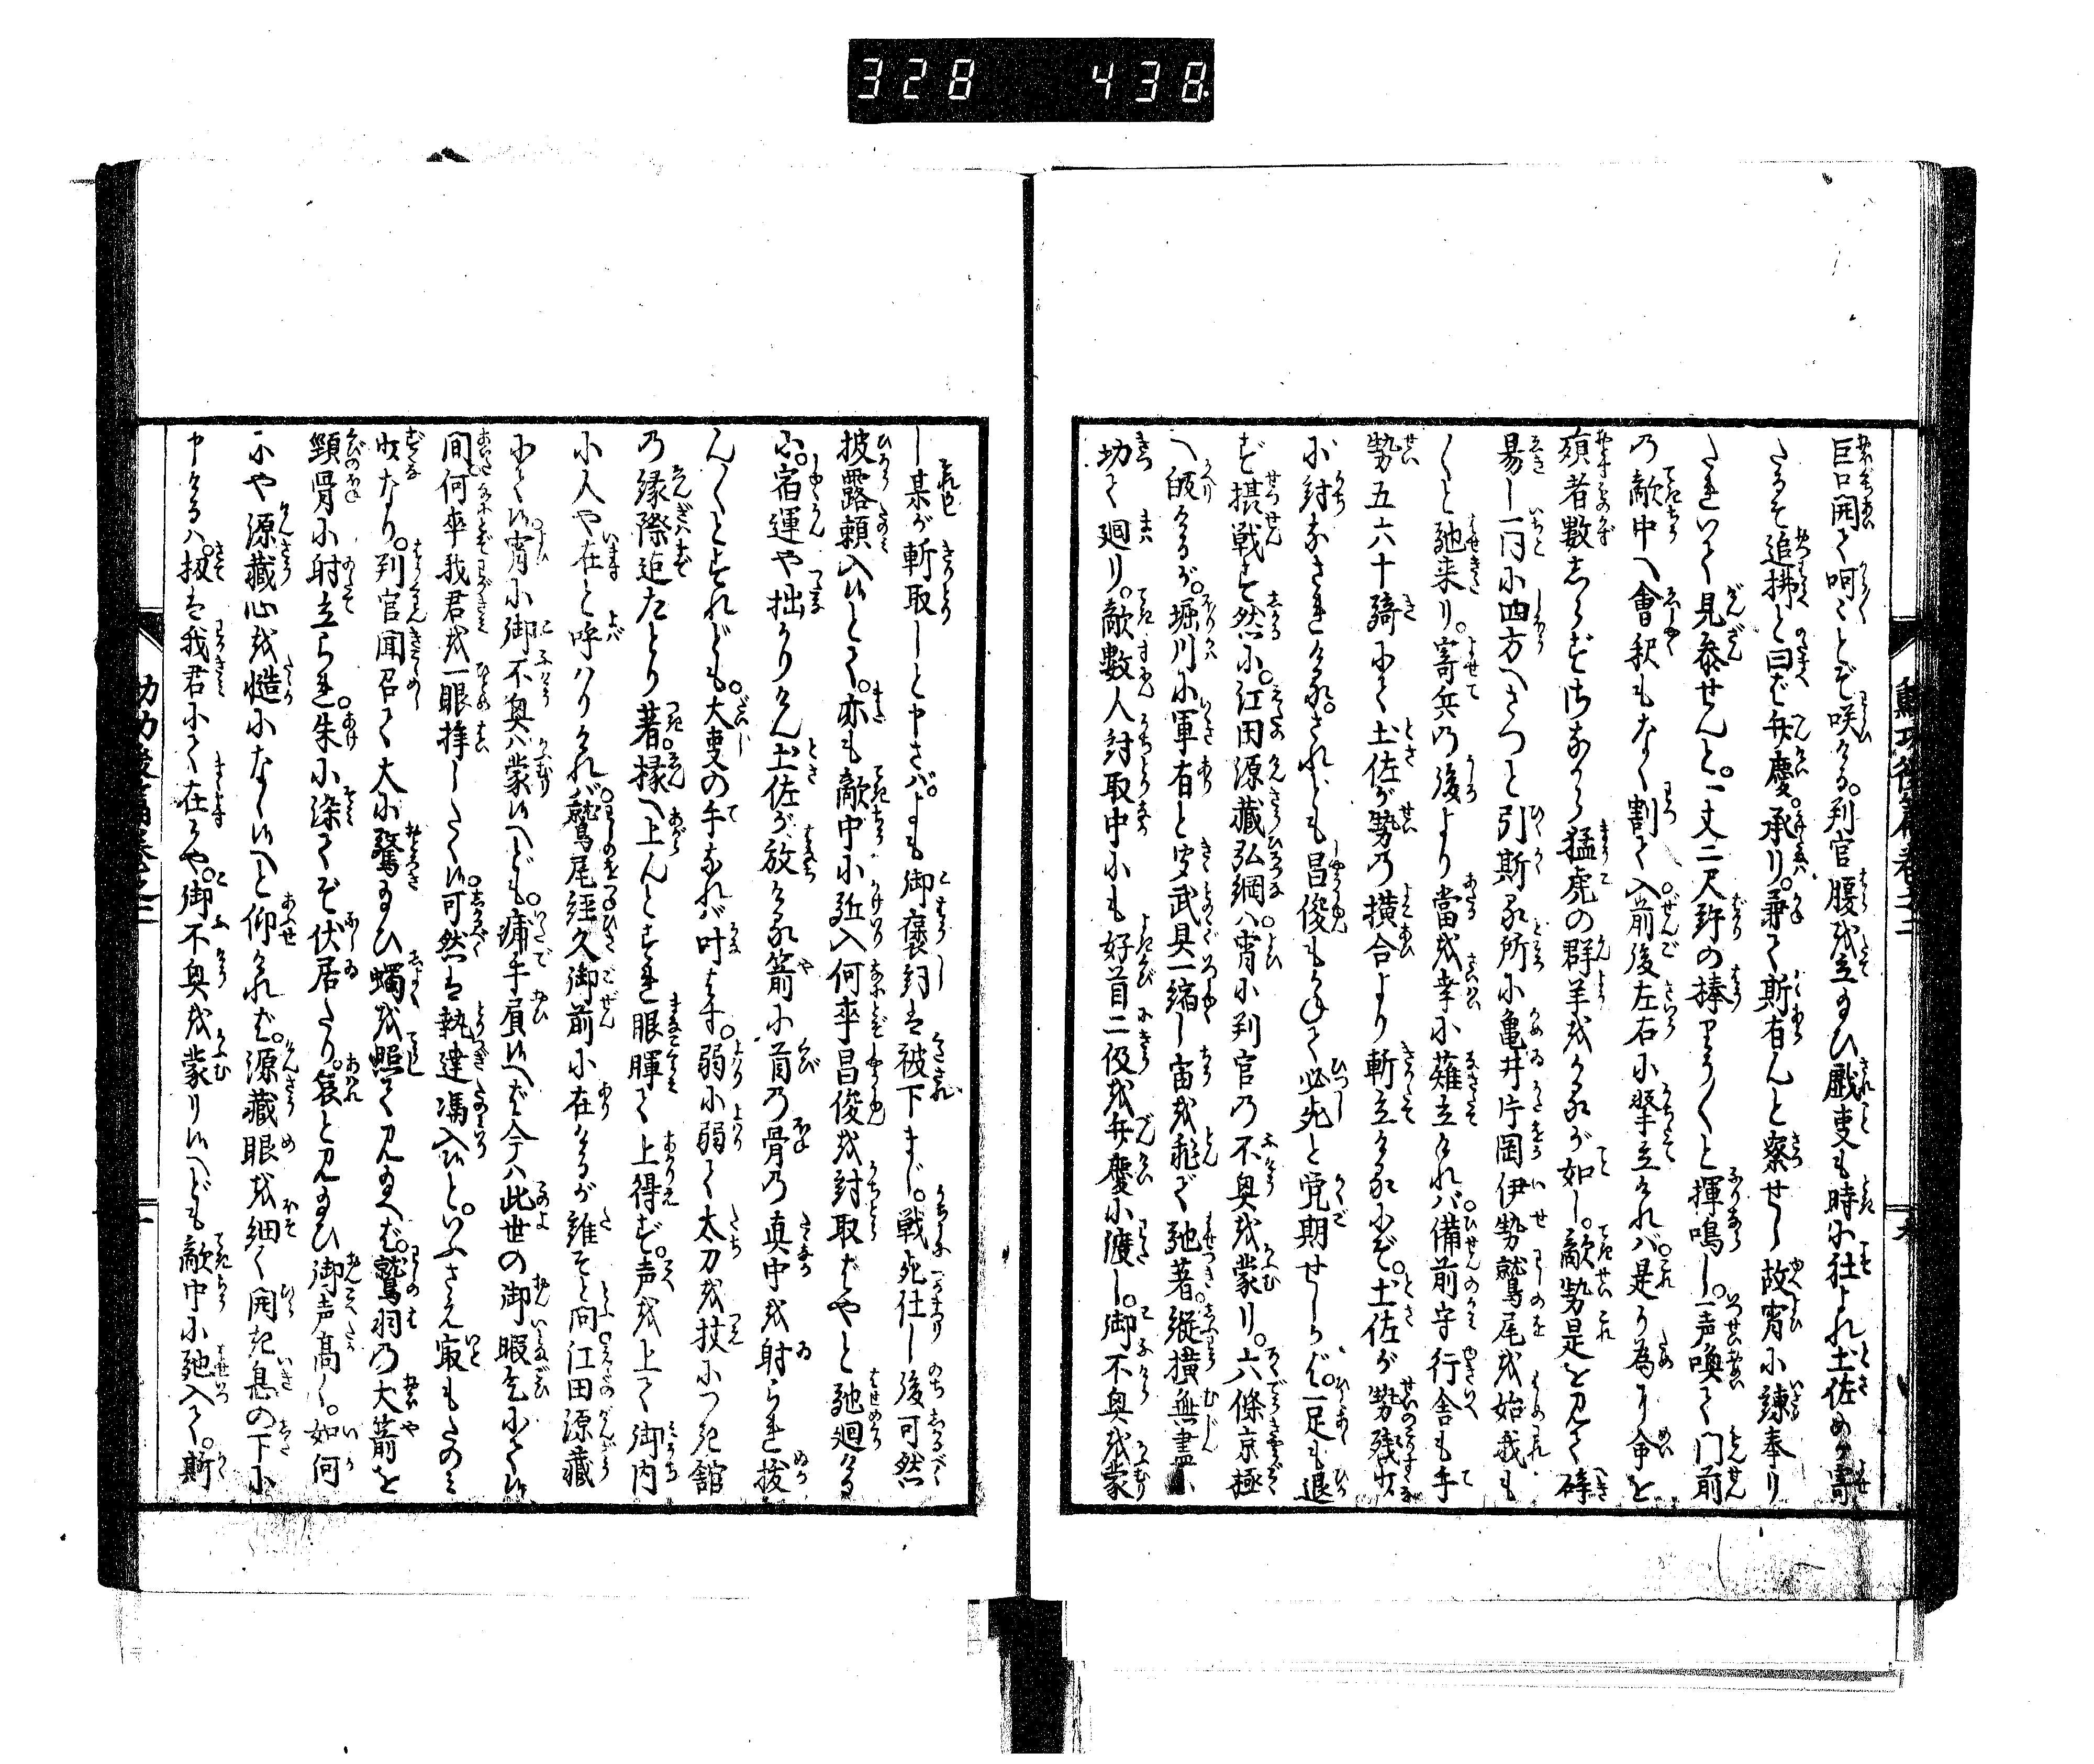 328 438
巨口開て呵〻とぞ咲ける。判官腹を立給ひ戯事も時に社よれ土佐めが寄
たるぞ追拂と曰ば弁慶。承り。兼て斯有んと察せし故宵に諫奉り
たれいで見参せんと。一丈二尺許の棒りう〳〵と揮鳴し。一声喚て门前
の敵中へ會釈もなく割て入前後左右に撃立けれバ。是が為に命を
殞者數しらず殊ながら猛虎の群羊をかるが如し。敵勢是を見て辟
易し一同に四方へさつと引斯る所に亀井片岡伊勢鷲尾を始我も
〳〵と馳来り。寄兵の後より當を幸に薙立けれバ。備前守行舎も手
勢五六十騎にて土佐が勢の横合より斬立けるにぞ。土佐が勢残少
に討なされける。されども昌俊もかねて必死と覚期せしかば。一足も退
ず接戦す然に。江田源藏弘綱ハ宵に判官の不興を蒙り。六條京極
へ皈けるが。堀川に軍有と聞武具一縮し宙を飛で馳著。縦横無盡に
切て廻り。敵數人討取中にも好首二级を弁慶に渡し。御不興を蒙
し某が斬取しと申さバ。よも御褒詞は被下まじ。戦死仕し後可然
披露頼入いとて。亦も敵中に駈入何卒昌俊を討取ばやと馳廻ける
に。宿運や拙かりけん土佐が放ける箭に首の骨の真中を射られ拔
ん〳〵とすれども。大事の手なれバ叶はず。弱に弱て太刀を杖につき舘
の縁際迄たどり著。椽へ上んとすれ眼暉て上得ず。声を上て御内
に人や在と呼ハりけれバ。鷲尾経久御前に在けるが誰そと問。江田源藏
にてい。宵に御不興ハ蒙いへども。痛手肩いへば今ハ此世の御暇乞にてい
間何卒我君を一眼拝したくい。可然は執達馮入いと。いふさえ最もたのミ
少なり。判官聞召て大に驚給ひ蠋を照て見給へば。鷲羽の大箭を
頸骨に射立られ。朱に染てぞ伏居たり。哀と見給ひ御声高く。如何
にや源藏心を慥になくいへと仰けれど。源藏眼を細く開き息の下に
申けるハ。扨は我君にて在や。御不興を蒙りいへども敵中に馳入て。斯